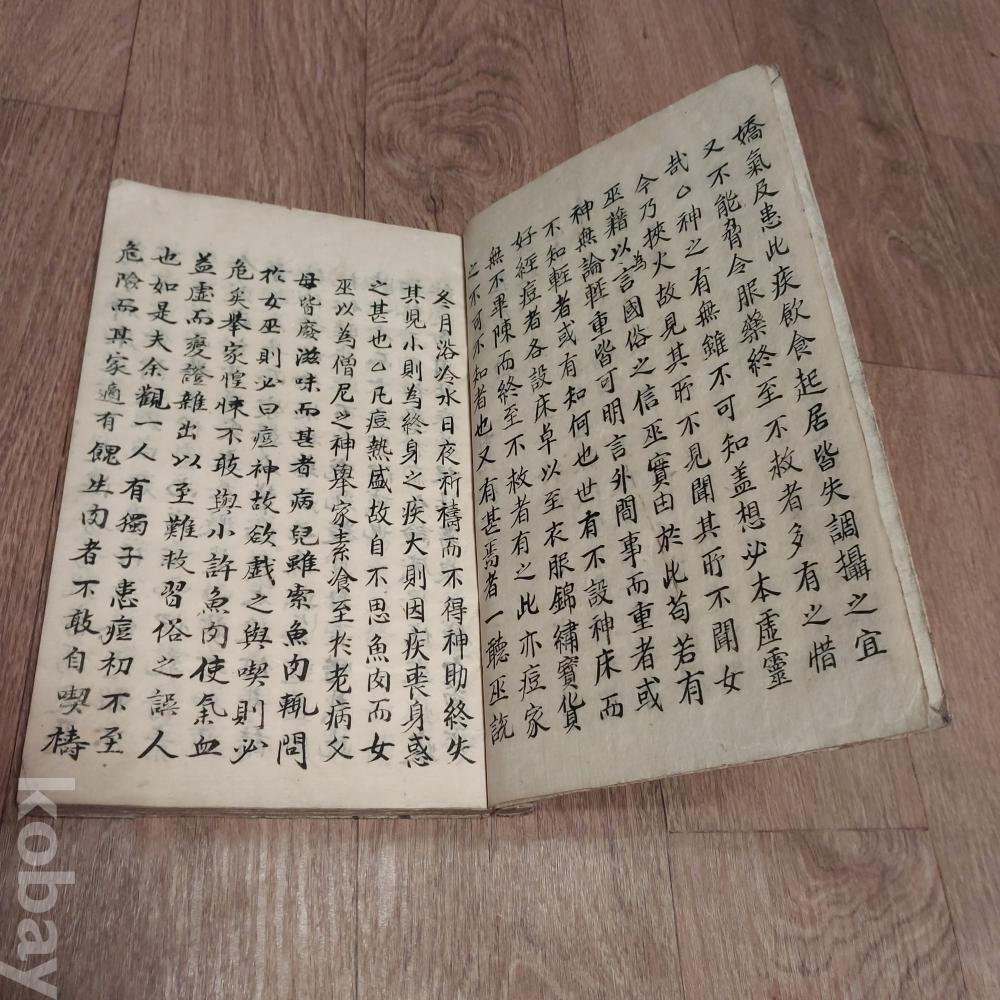 嬌氣及患此疾飲食起居皆失調攝之宜
又不能脅令服藥終至不救者多有之惜
哉○神之有無雖不可知盖想必本虛靈
今乃挾火故見其所不見聞其所不聞女
巫藉以為言國俗之信巫實由於此苟若有
神無論輕重皆可明言外間事而重者或
不知輕者或有知何也世有不設神床而
好經痘者各設床卓以至衣服錦繡寶貨
無不畢陳而終至不救者有之此亦痘家
之不可不知者也又有甚焉者一聽巫說
冬月浴冷水日夜祈禱而不得神助終失
其児小則為終身之疾大則因疾喪身惑
之甚也○凡痘熱盛故自不思魚肉而女
巫以為僧尼之神舉家素飡至於老病父
母皆廢滋味而甚者病兒雖索魚肉輒問
於女巫則必曰痘神故欲戲之與喫則必
危矣擧家惶悚不敢與小許魚肉使氣血
益虛而變證雜出以至難救習俗之誤人
也如是夫余觀一人有獨子患痘初不至
危險而其家適有餽生肉者不敢自喫禱
kobay